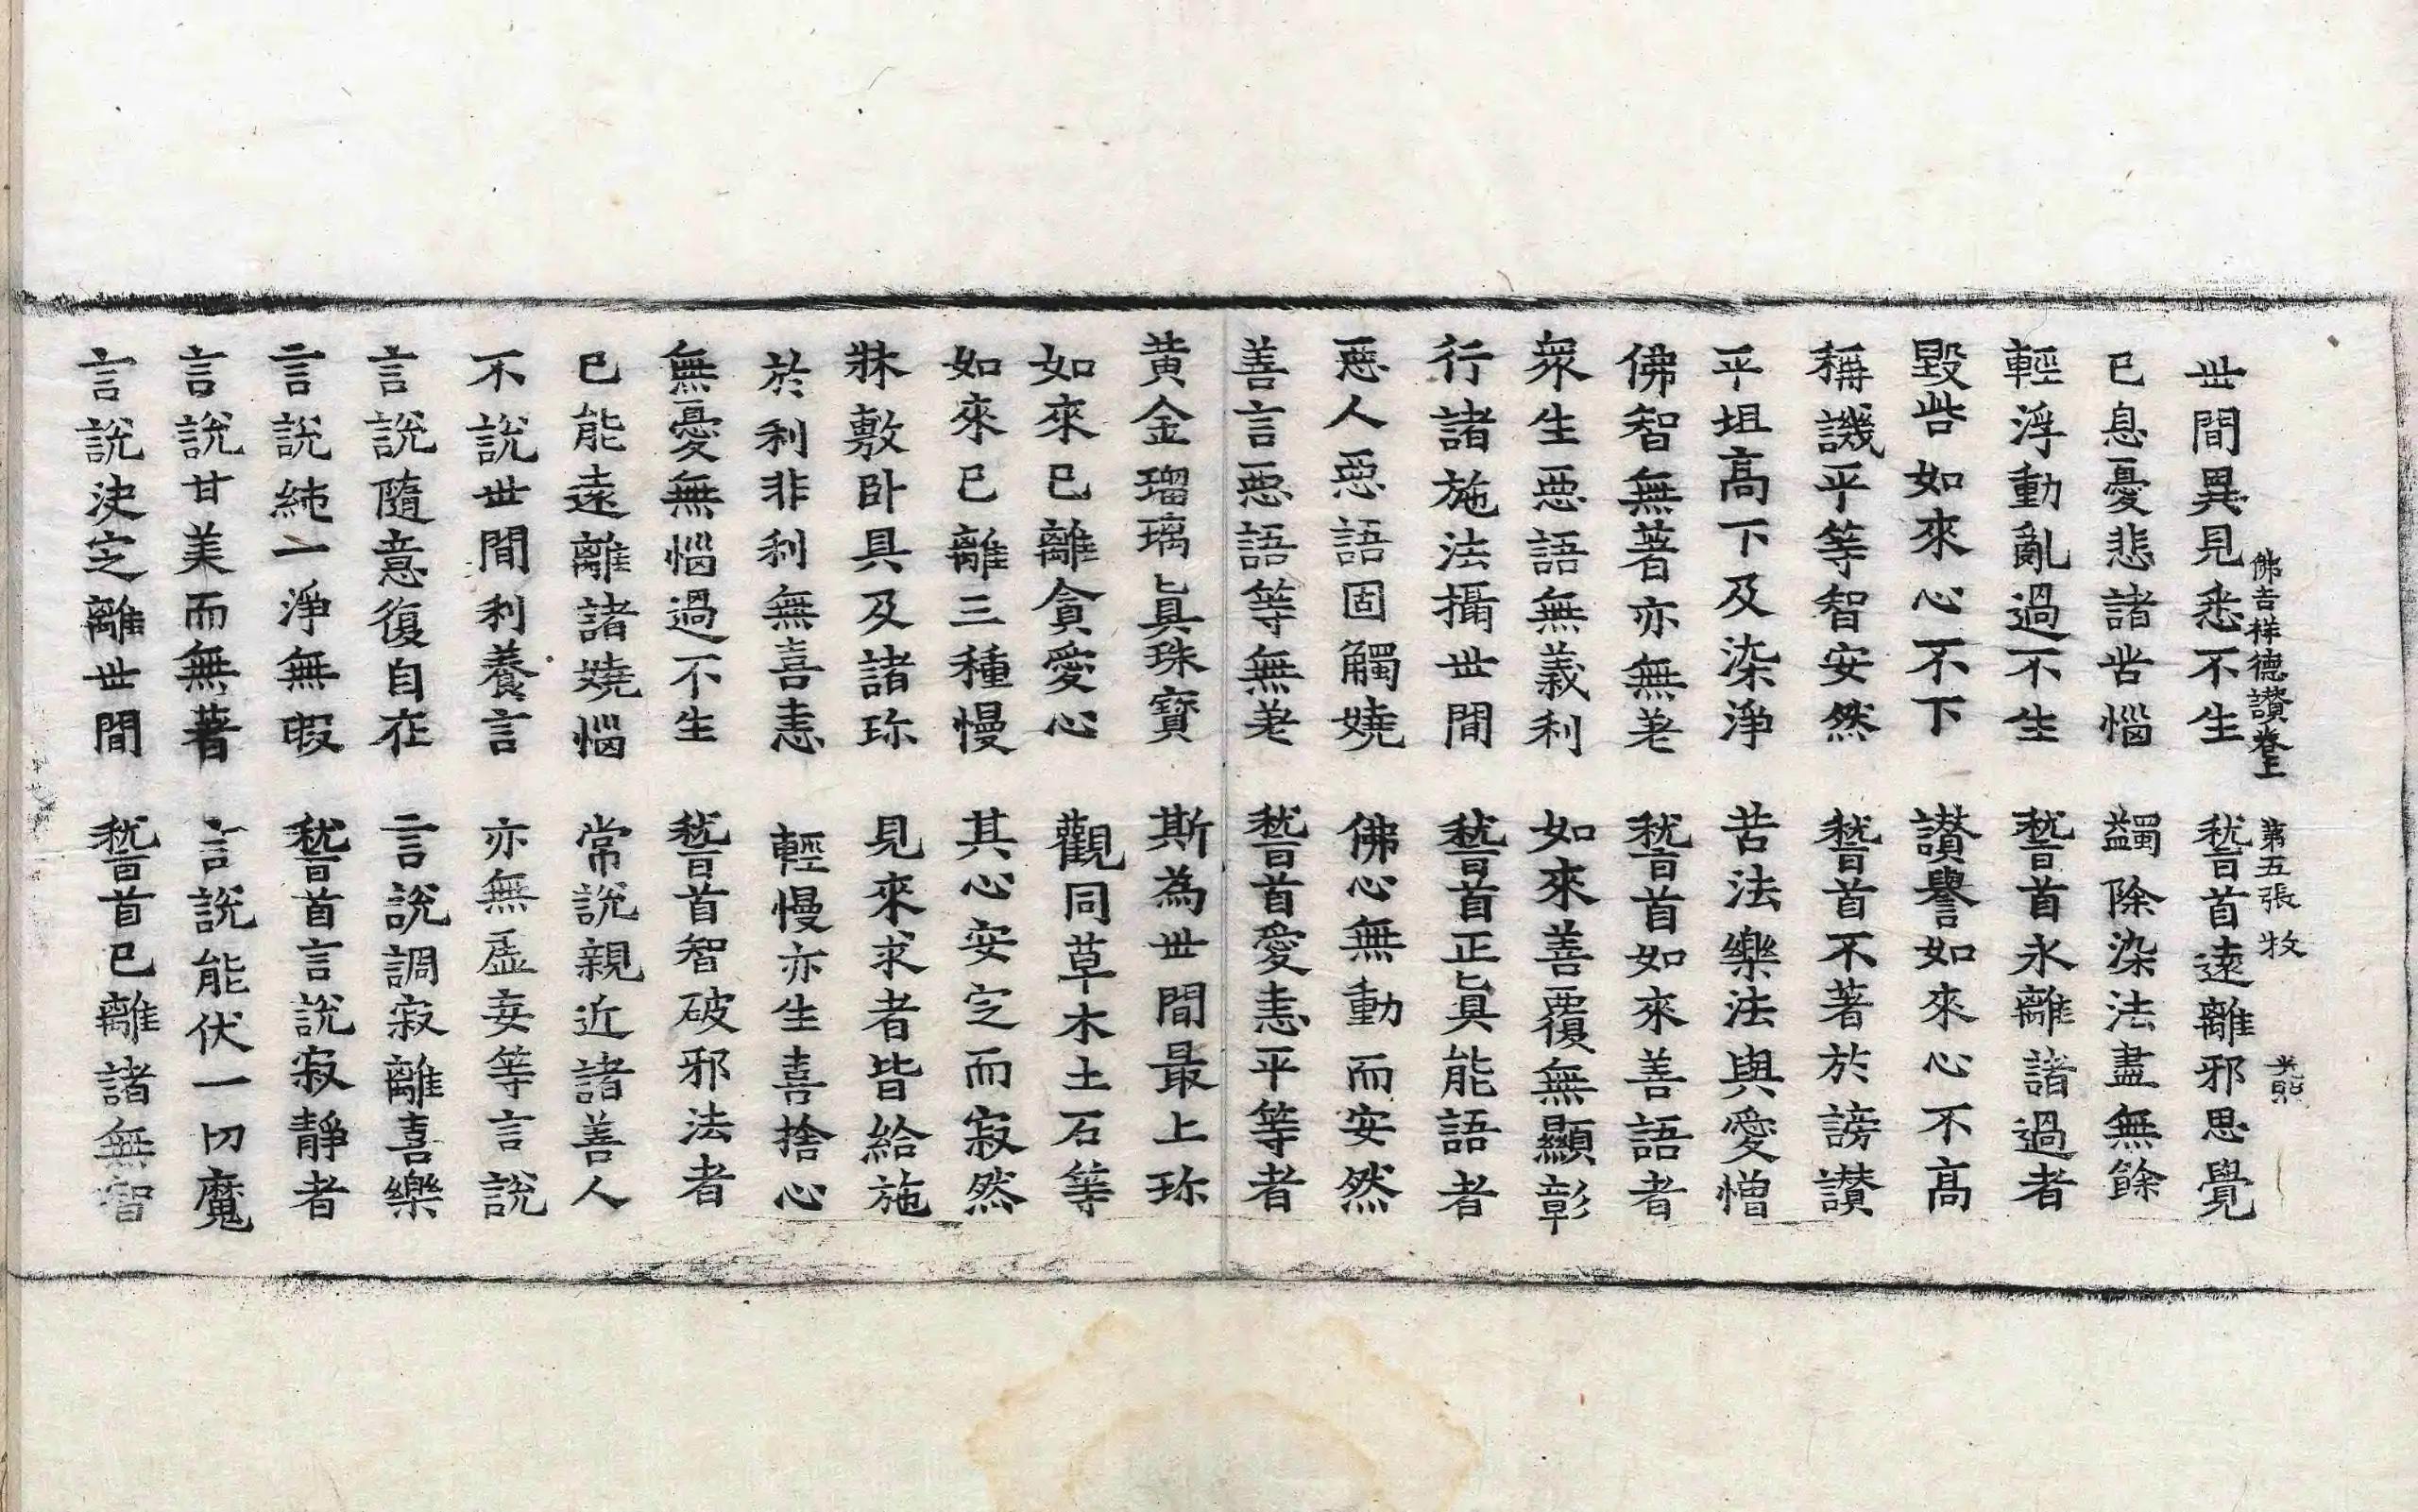 佛吉祥德讃卷上　第五張　牧
世間異見悉不生　嵆首遠離邪思覺
已息憂悲諸苦惱　蠲除染法盡無餘
輕浮動亂過不生　嵆首永離諸過者
毀呰如來心不下　讃譽如來心不高
稱譏平等智安然　嵆首不著於謗讃
平坦高下及染淨　苦法樂法與愛憎
佛智無著亦無老　嵆首如來善語者
衆生惡語無義利　如來善覆無顯彰
行諸施法攝世間　嵆首正眞能語者
惡人惡語固觸嬈　佛心無動而安然
善言惡語等無老　嵆首愛恚平等者
黄金瑠璃眞珠寶　斯為世間最上珎
如來已離貪愛心　觀同草木土石等
如來已離三種慢　其心安㝎而寂然
牀敷卧具及諸珎　見來求者皆給施
於利非利無喜恚　輕慢亦生喜捨心
無憂無惱過不生　嵆首智破邪法者
已能遠離諸嬈惱　常說親近諸善人
不說世間利養言　亦無虛妄等言說
言說隨意復自在　言說調寂離喜樂
言說純一淨無瑕　嵆首言說寂靜者
言說甘美而無著　言說能伏一切魔
言說決㝎離世間　嵆首已離諸無智